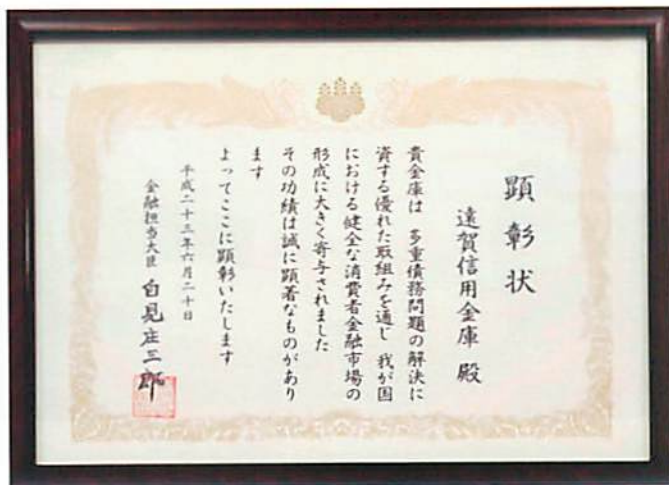 顕彰状
遠賀信用金庫 殿
貴金庫は 多重債務問題の解決に
資する優れた取組みを通じ 我が国
における健全な消費者金融市場の
形成に大きく寄与されました
その功績は誠に顕著なものがあり
ます
よってここに顕彰いたします
平成二十三年六月二十日
金融担当大臣 自見庄三郎